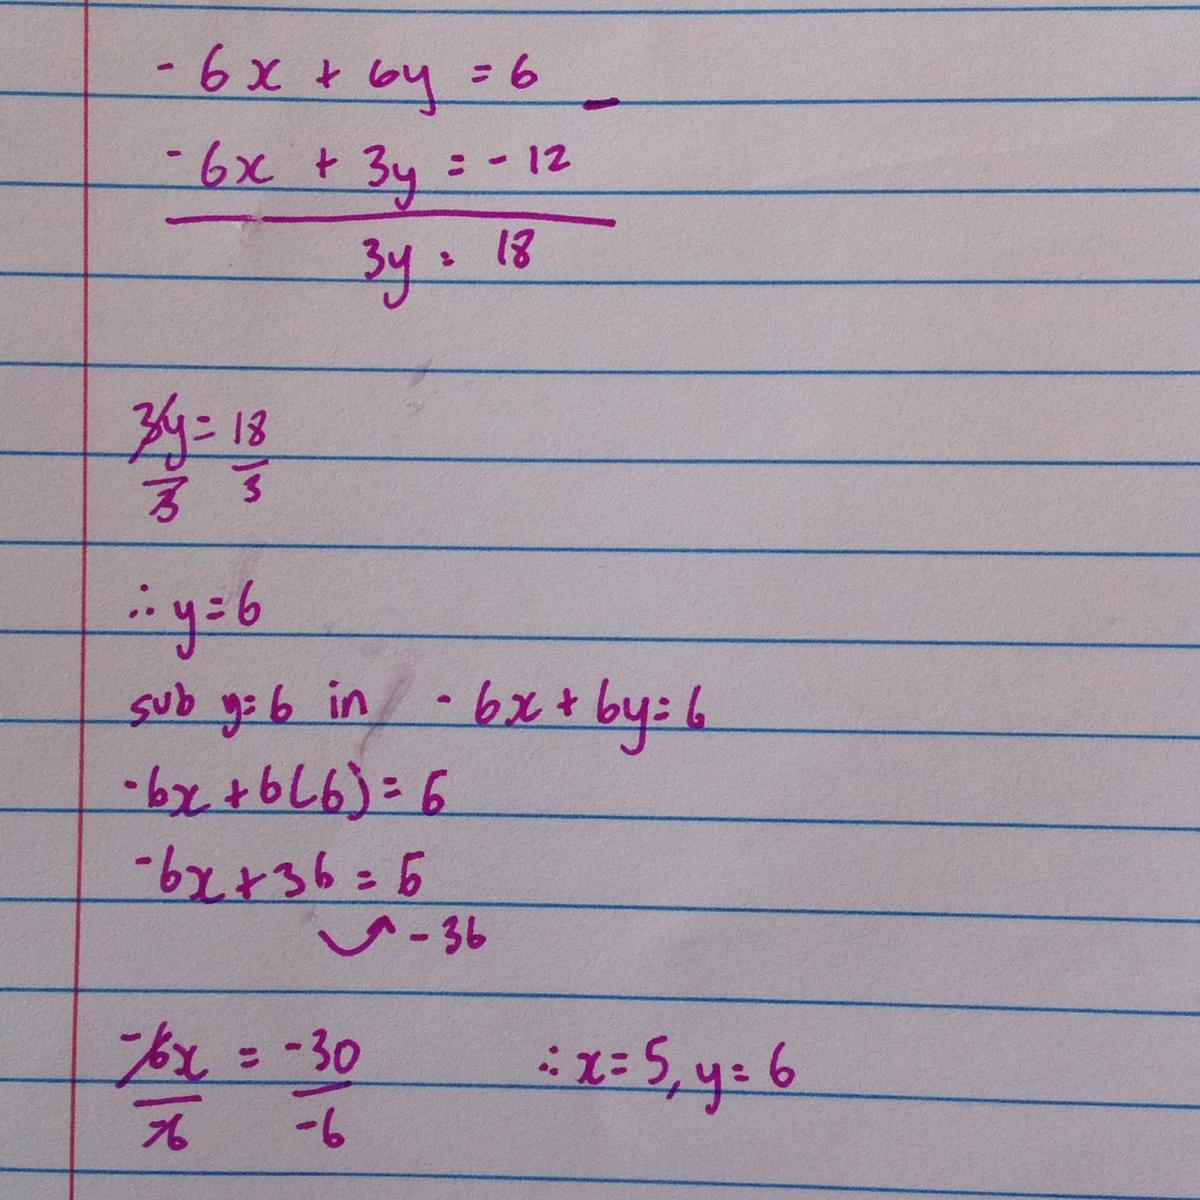 -6x + 6y = 6 -
-6x + 3y = -12
3y = 18
3y = 18
3 3
∴ y = 6
sub y=6 in -6x + 6y = 6
-6x + 6(6) = 6
-6x + 36 = 6
-36
-6x = -30 ∴ x = 5, y = 6
-6 -6